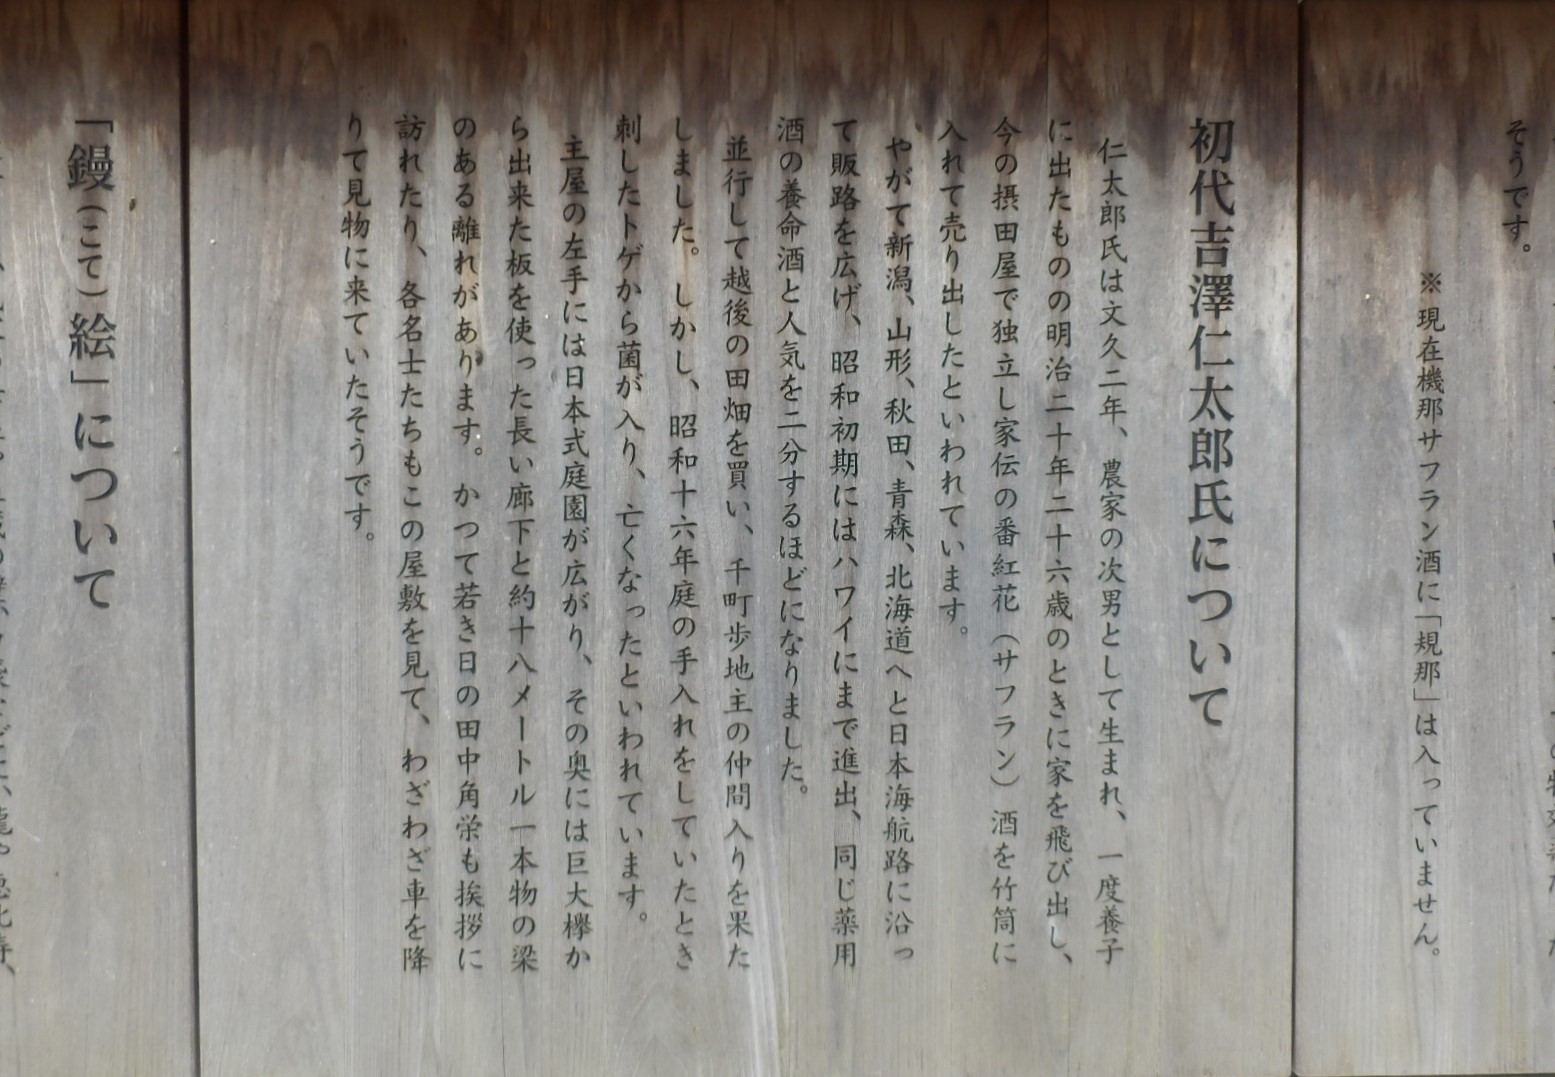 そうです。
※現在機那サフラン酒に「規那」は入っていません。
初代吉澤仁太郎氏について
仁太郎氏は文久二年、農家の次男として生まれ、一度養子
に出たものの明治二十年二十六歳のときに家を飛び出し、
今の摂田屋で独立し家伝の番紅花（サフラン）酒を竹筒に
入れて売り出したといわれています。
やがて新潟、山形、秋田、青森、北海道へと日本海航路に沿っ
て販路を広げ、昭和初期にはハワイにまで進出、同じ薬用
酒の養命酒と人気を二分するほどになりました。
並行して越後の田畑を買い、千町歩地主の仲間入りを果た
しました。しかし、昭和十六年庭の手入れをしていたとき
刺したトゲから菌が入り、亡くなったといわれています。
主屋の左手には日本式庭園が広がり、その奥には巨大欅か
ら出来た板を使った長い廊下と約十八メートル一本物の梁
のある離れがあります。かつて若き日の田中角栄も挨拶に
訪れたり、各名士たちもこの屋敷を見て、わざわざ車を降
りて見物に来ていたそうです。
「鏝（こて）絵」について